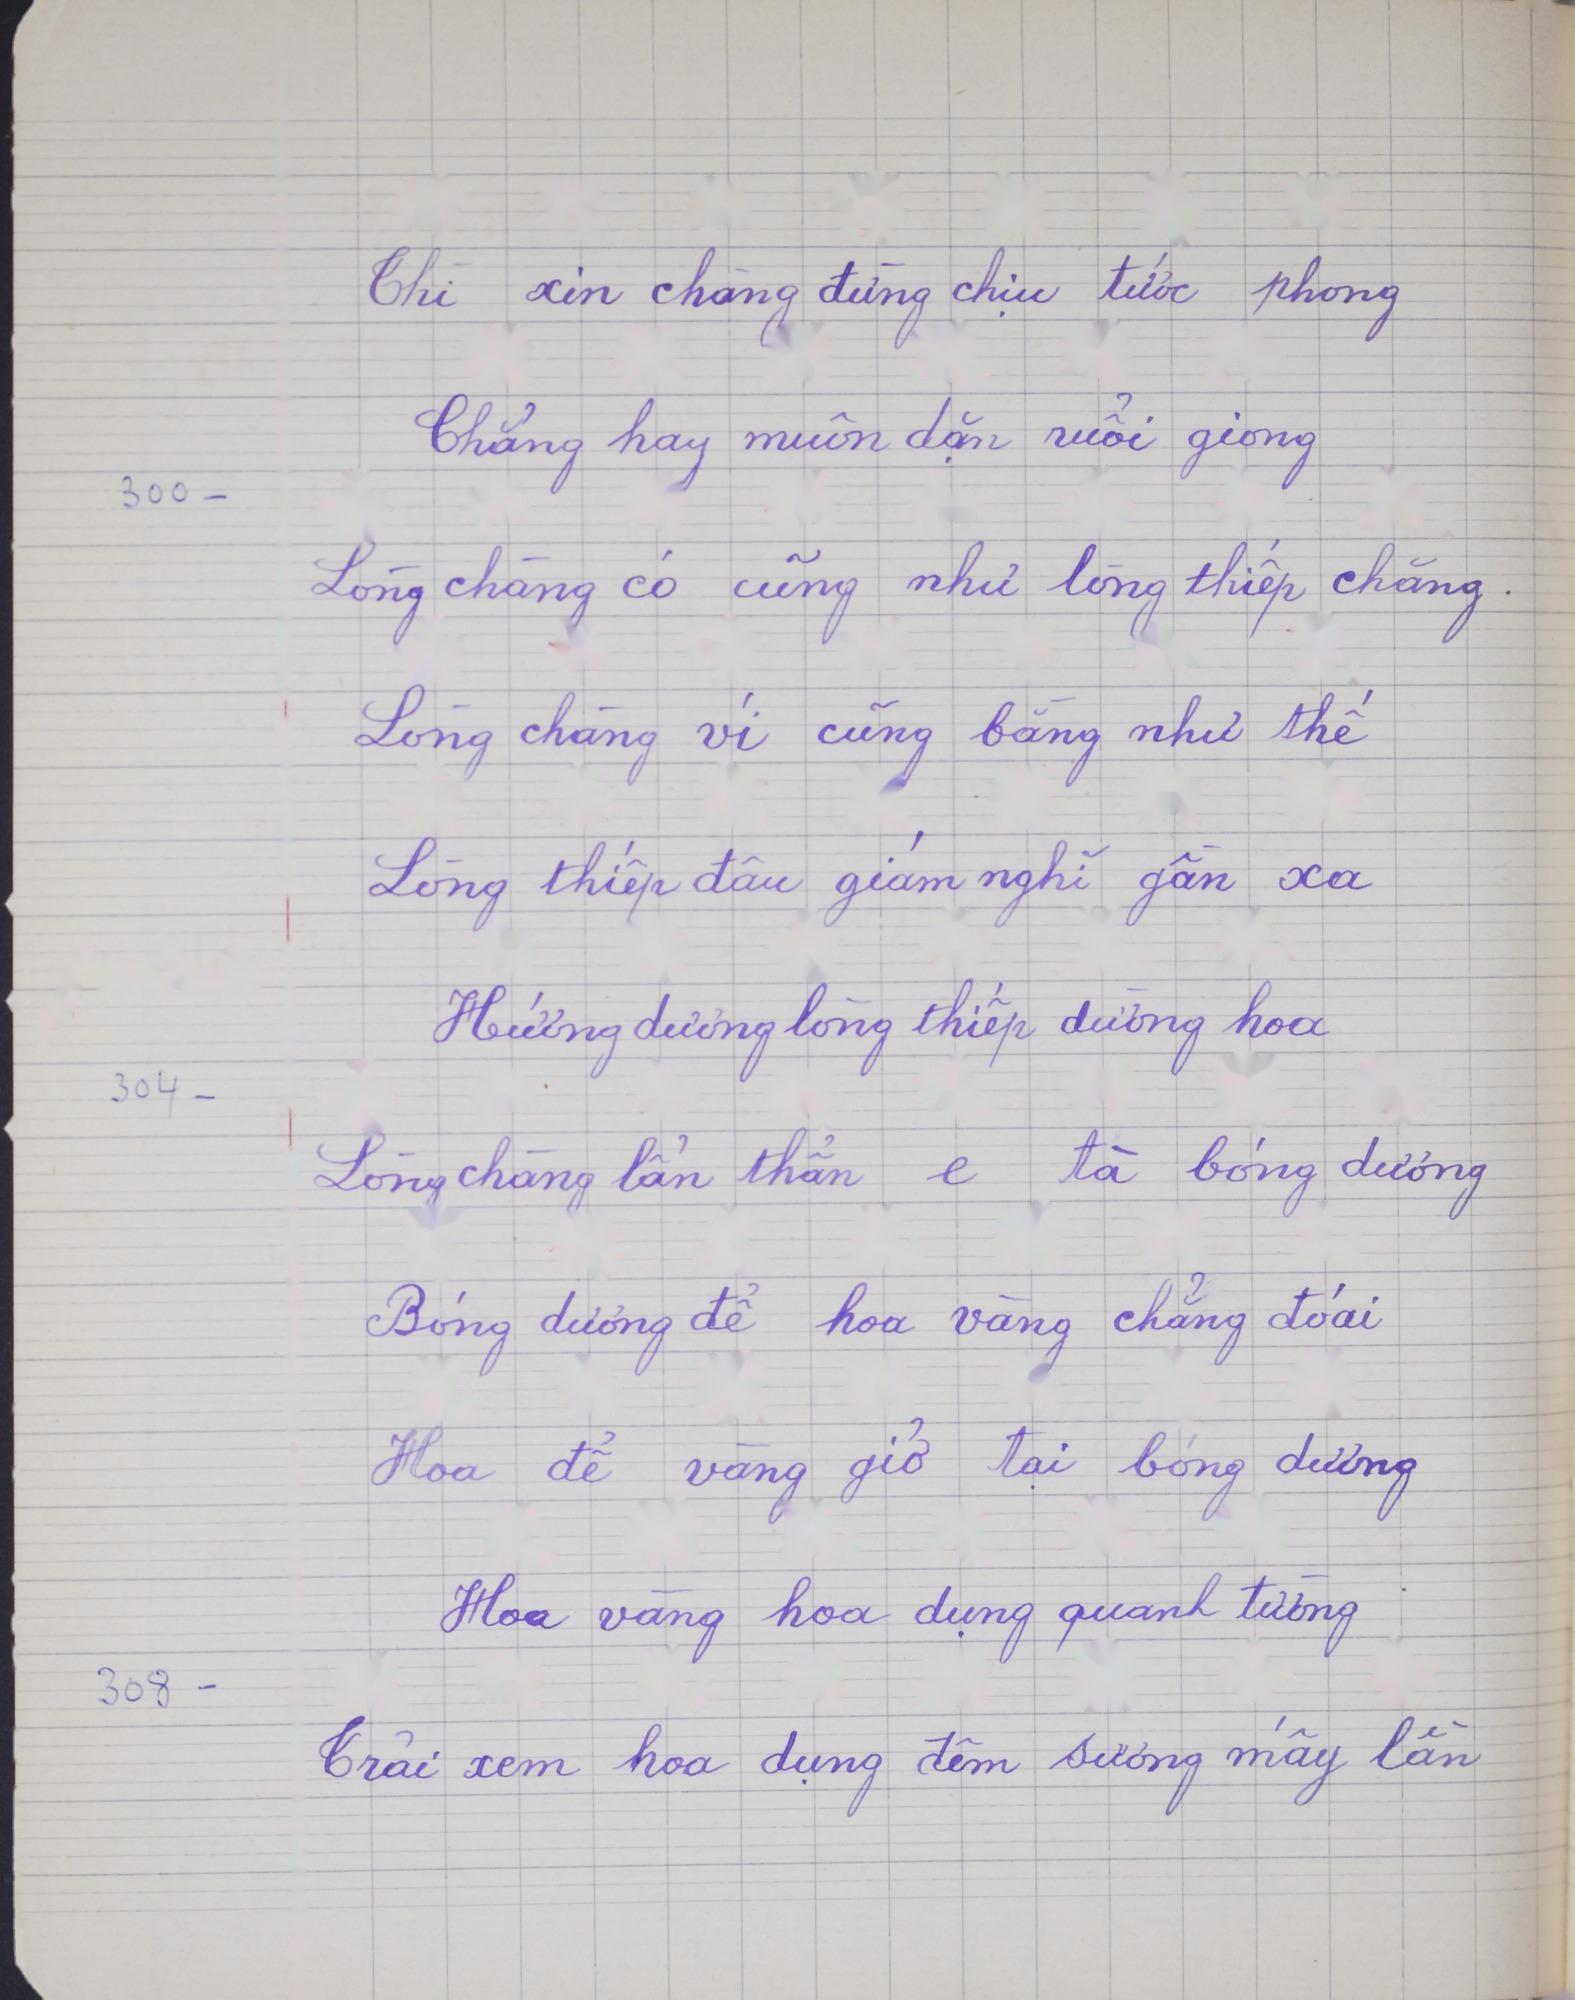 Thì xin chàng đừng chịu tước phong
Chẳng hay muôn dặn ruổi giong
300 –
Lòng chàng có cũng như lòng thiếp chăng.
Lòng chàng ví cũng bằng như thế
Lòng thiếp đâu giám nghĩ gần xa
Hướng dương lòng thiếp dường hoa
304 –
Lòng chàng lẩn thẩn e tà bóng dương
Bóng dương để hoa vàng chẳng đoái
Hoa để vàng giở tại bóng dương
Hoa vàng hoa dụng quanh tường
308 –
Trải xem hoa dụng đêm sương mấy lần